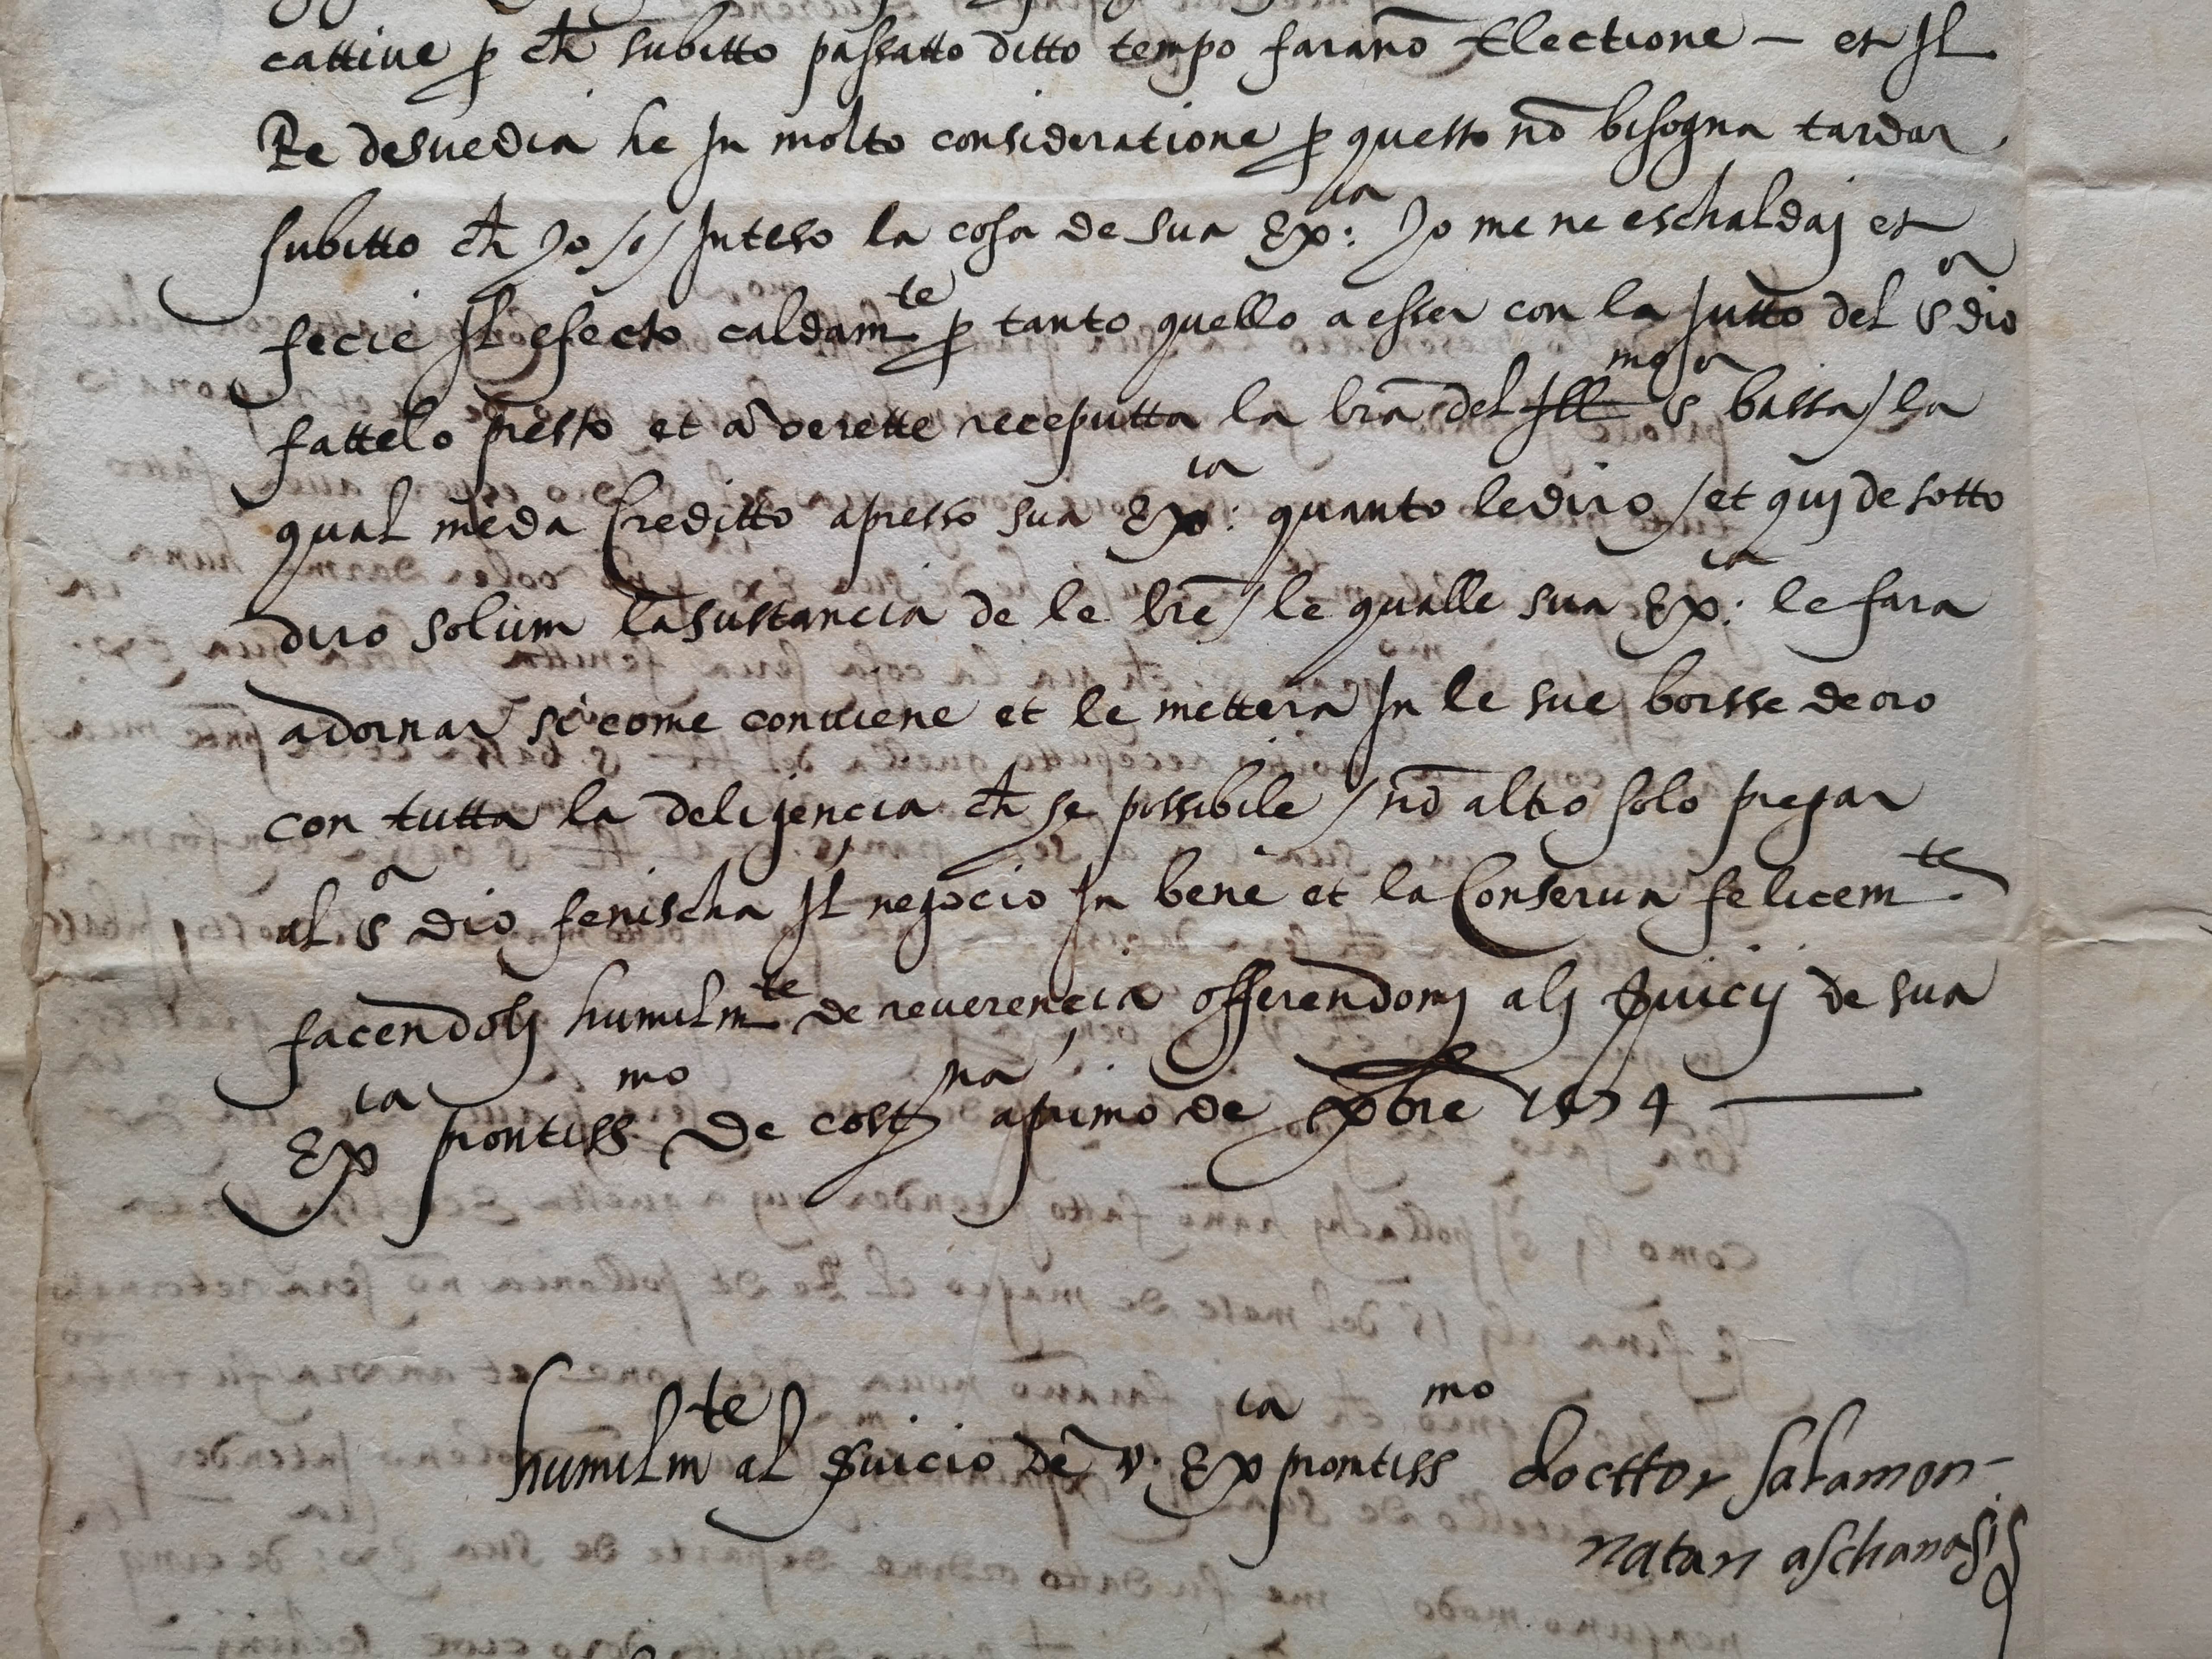 cattiue p ch subitto passatto ditto tempo farano Electione – et Il
Re desuedia he In molto consideratione p questo nō bisogna tardar
subitto ch Io /o/ Inteso la cosa de sua Ex:ia Io me ne eschaldaj et
fecie Il efecto caldamte p tanto quello a esser con la Iutto del Sor dio
fattelo presto et averette receputta la lrā del Illmo Sor bassa / la
qual meda Creditto apresso sua Ex:ia quanto lediro / et quj de sotto
diro solum lasustancia de le lrē / le qualle sua Ex:ia le fara
adornar si come conuiene et le mettera In le sue borsse de oro
con tutta la deligencia ch se possibile / nō altro solo pregar
al Sor dio fenischa Il negocio In bene et la Conserua felicemte
facendolj humilmte de reuerencia offerendomj alj seruicij de sua
Exia prontissmo De costna a primo de xbre 1574
humilmte al seruicio de v. Exia prontissmo docttor Salamon
natan aschanasij